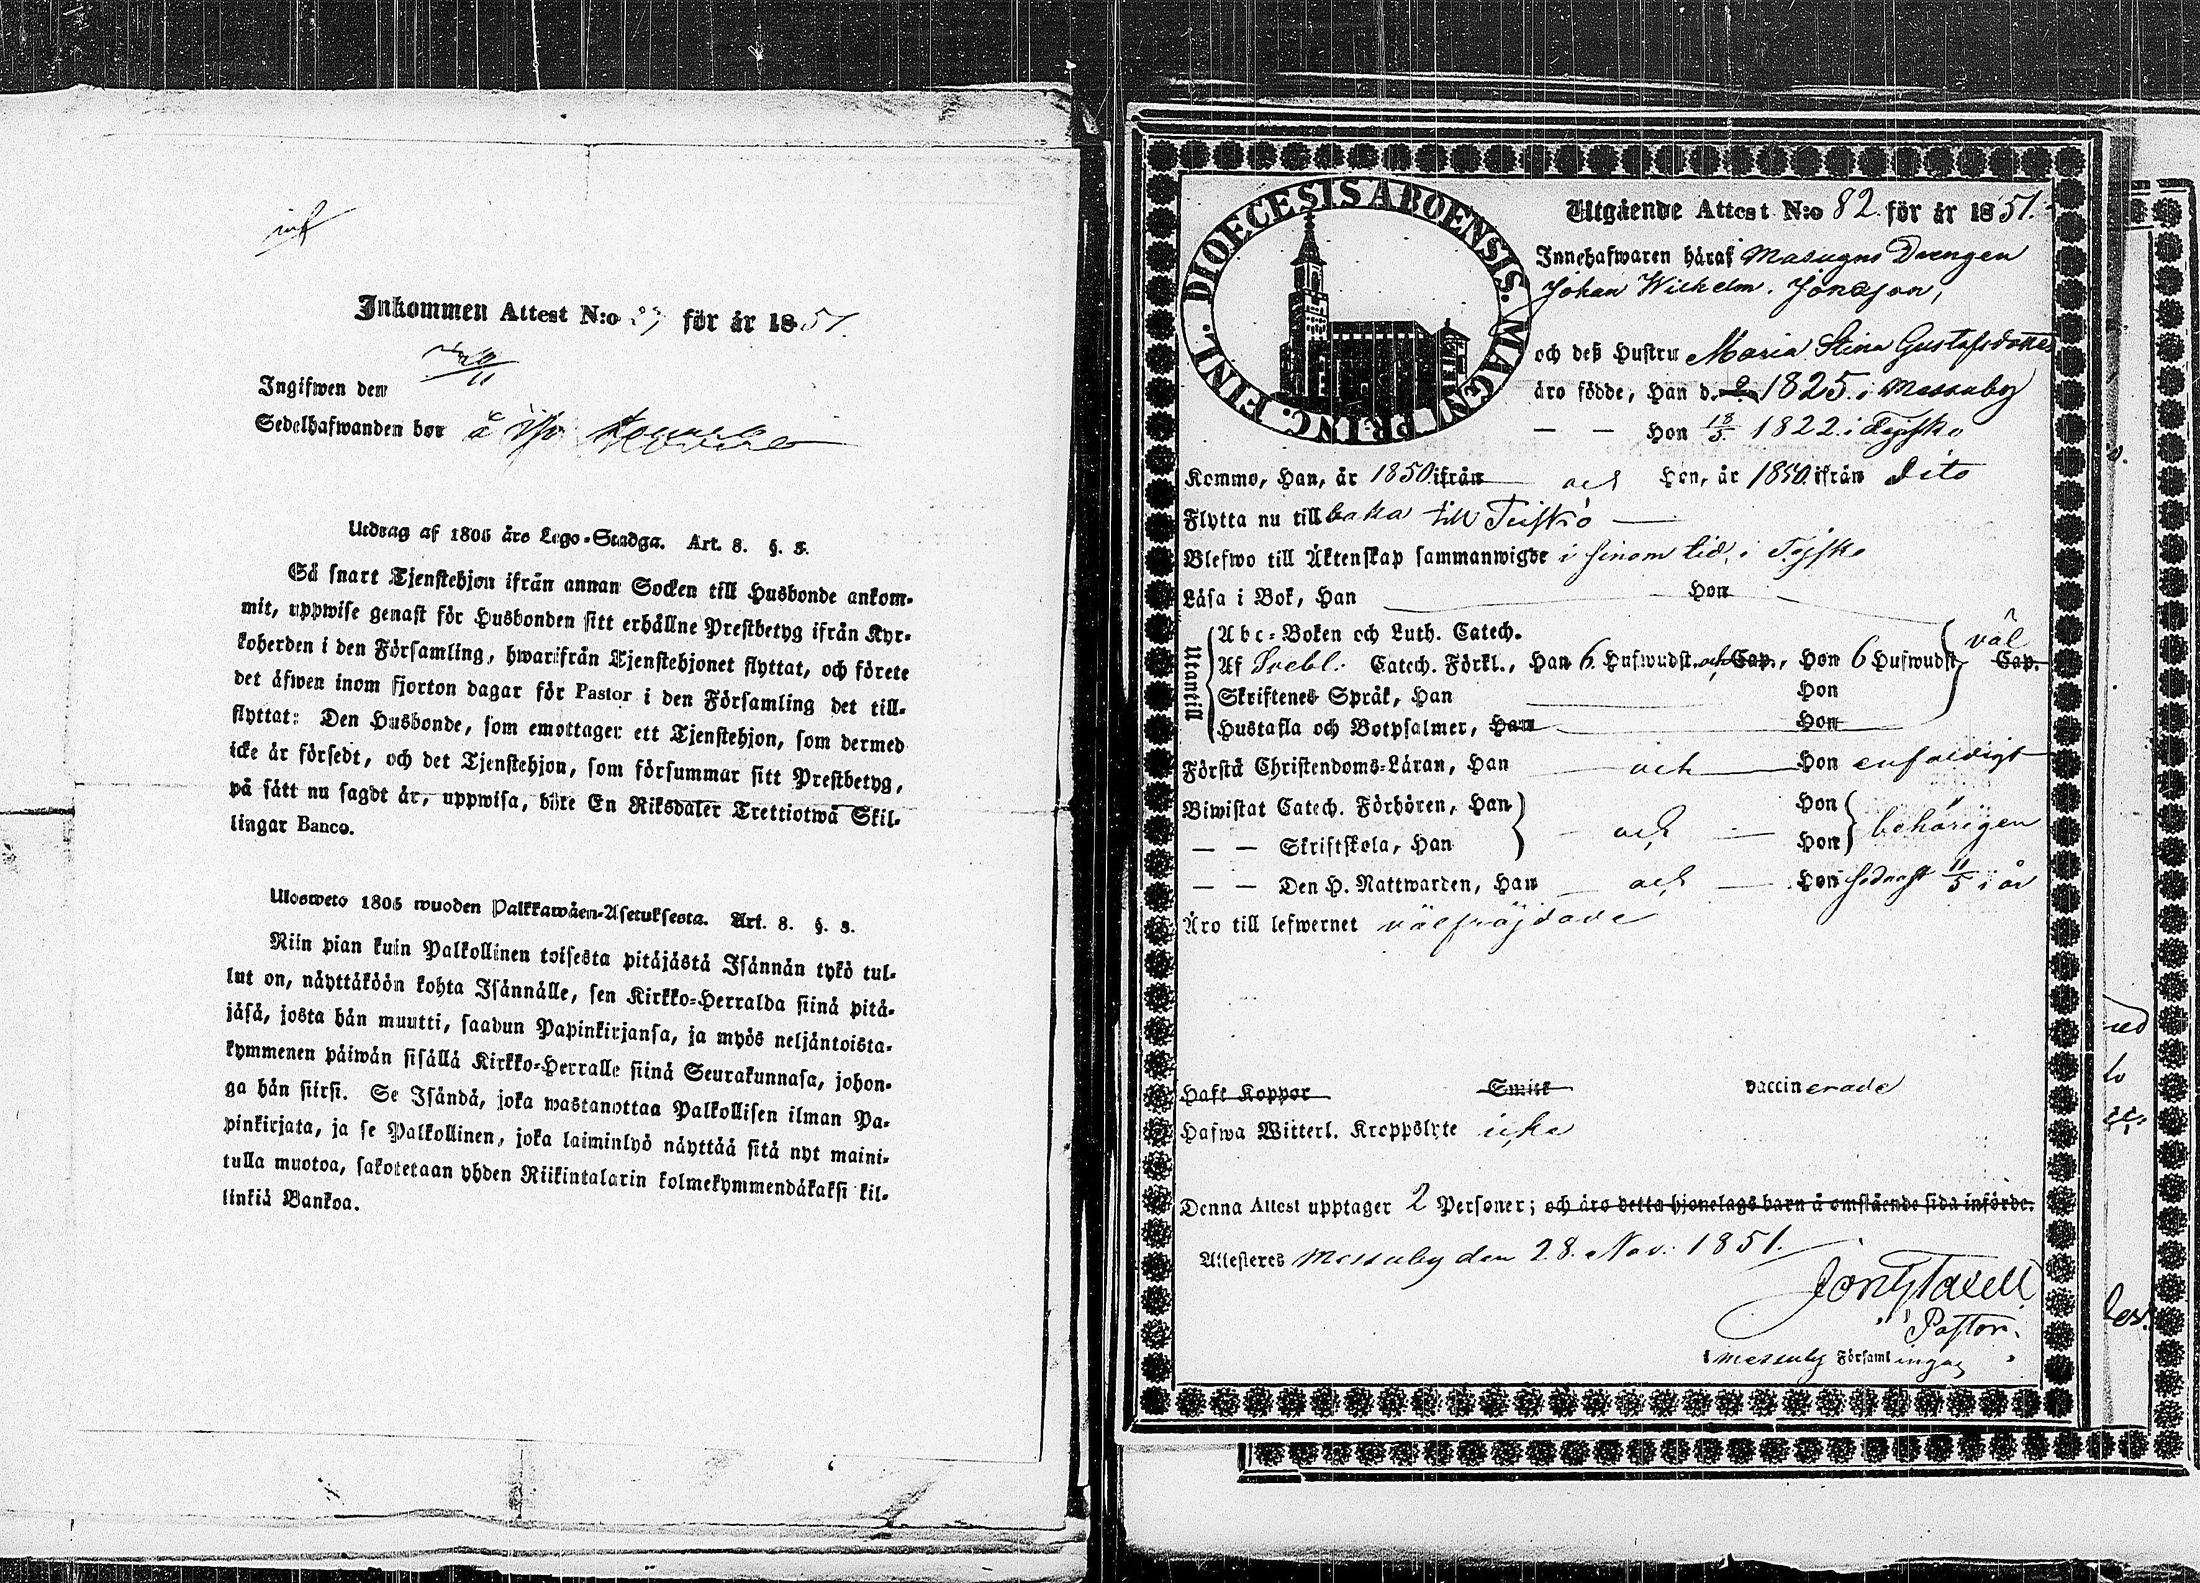 Inkommen Attest N:o för år 1851.
Ingifwen den
Sedelhafwanden bor å
Utdrag af 1805 års Lego-Stadga. Art. 8. §. 3.
Så snart Tjenstehjon ifrån annan Socken till Husbonde ankom-
mit, uppwise genast för Husbonden sitt erhållne Prestbetyg ifrån Kyr-
koherden i den Församling, hwarifrån Tjenstehjonet flyttat, och förete
det äfwen inom fjorton dagar för Pastor i den Församling det till-
flyttat: Den Husbonde, som emottager ett Tjenstehjon, som dermed
icke är försedt, och det Tjenstehjon, som försummar sitt Prestbetyg,
på sätt nu sagdt är, uppwisa, böte En Riksdaler Trettiotwå Skil-
lingar Banco.
Ulosweto 1805 wuoden Palkkawäen-Asetuksesta. Art. 8. §. 3.
Niin pian kuin Palkollinen toisesta pitäjästä Isännän tykö tul-
lut on, näyttäköön kohta Isännälle, sen Kirkko-Herralda siinä pitä-
jäsä, josta hän muutti, saadun Papinkirjansa, ja myös neljäntoista-
kymmenen päiwän sisällä Kirkko-Herralle siinä Seurakunnasa, johon-
ga hän siirsi. Se Isändä, joka wastanottaa Palkollisen ilman Pa-
pinkirjata, ja se Palkollinen, joka laiminlyö näyttää sitä nyt maini-
tulla muotoa, sakotetaan yhden Riikintalarin kolmekymmendäkaksi kil-
linkiä Bankoa.
DIOECESIS ABOENSIS. MAGNI PRINC. FINL.
Utgående Attest N:o 82 för år 1851.
Innehafwaren häraf Masugns Drengen
Johan Wilhelm Jonasson,
och deß Hustru Maria Stina Gustafsdotter
äro födde, Han d. 1825 i Messuby
— — Hon 13/5 1822 i Teisko
Komme, Han, år 1850 ifrån och Hon, år 1850 ifrån dito
Flytta nu tillbaka till Teisko
Blefwo till Äktenskap sammanwigde i sinom tid, i Teisko
Läsa i Bok, Han Hon
Utantill
Abc-Boken och Luth. Catech.
Af Svebl. Catech. Förkl., Han 6 Hufwudst. och Cap., Hon 6 Hufwudst. Cap. väl
Skriftenes Språk, Han Hon
Hustafla och Botpsalmer, Han Hon
Förstå Christendoms-Läran, Han och Hon enfaldigt
Biwistat Catech. Förhören, Han Hon
och behörigen
— — Skriftskola, Han Hon
— — Den H. Nattwarden, Han och Hon sednast 11/5 i år
Äro till lefwernet välfräjdade
Haft Koppor Smitt vaccinerade
Hafwa Witterl. Kroppslyte icke
Denna Attest upptager 2 Personer; och äro detta hjonelags barn å omstående sida införde.
Attesteras Messuby den 28. Nov. 1851.
Pastor.
i Messuby Församlingar